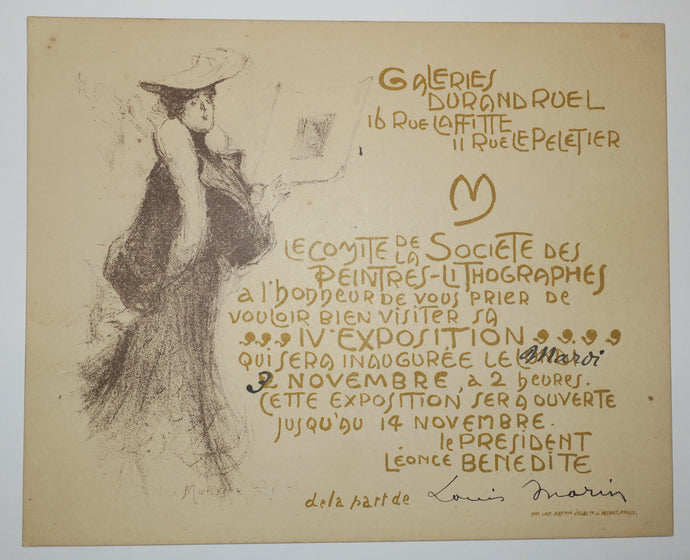 GALERIES
DURAND RUEL
16 RUE LAFFITTE
11 RUE LE PELETIER
M
LE COMITE DE LA SOCIETE DES
PEINTRES-LITHOGRAPHES
a l'honneur DE VOUS PRIER DE
VOULOIR BIEN VISITER SA
IVe EXPOSITION
QUI SERA INAUGURÉE LE Mardi
3 NOVEMBRE, a 2 heures.
CETTE EXPOSITION SERA OUVERTE
JUSQU'AU 14 NOVEMBRE.
le PRESIDENT
LÉONCE BENEDITE
de la part de Louis Morin